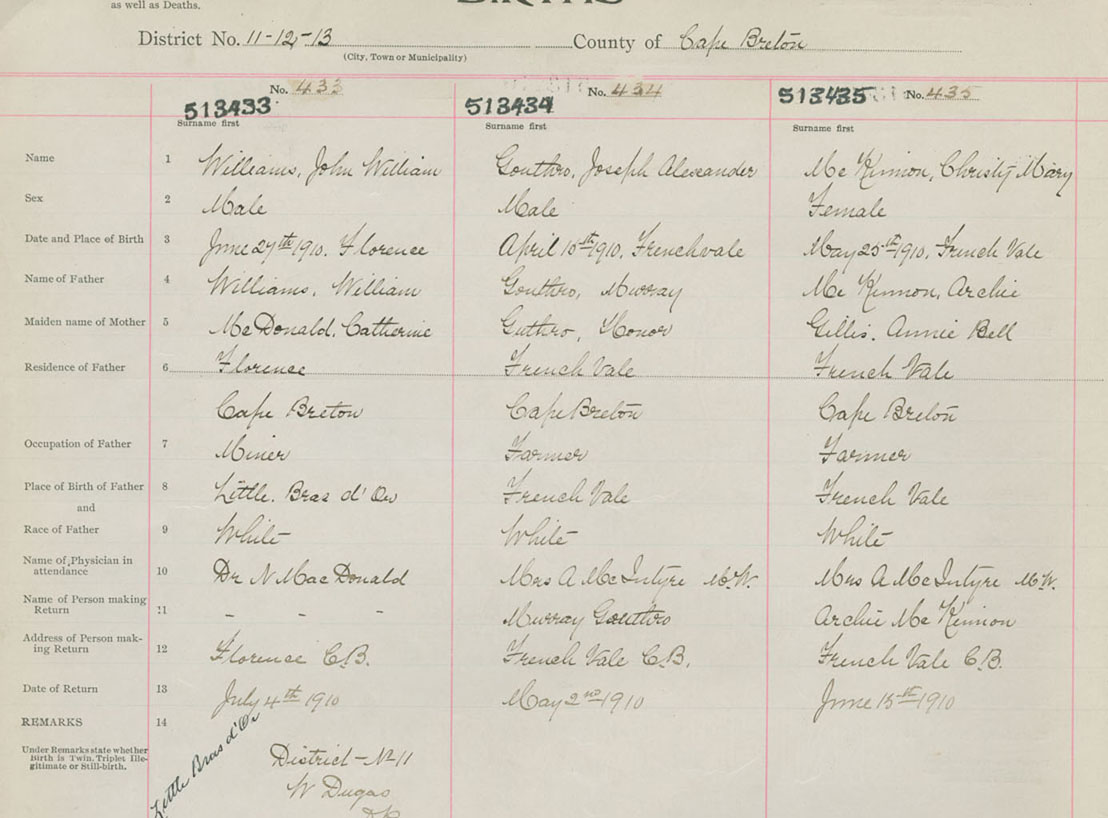 as well as Deaths.
BIRTHS
District No. 11-12-13 County of Cape Breton
(City, Town or Municipality)
No. 433 No. 434 No. 435
513433 513434 513435
Surname first Surname first Surname first
Name 1 Williams, John William Gouthro, Joseph Alexander Mc Kinnon, Christy Mary
Sex 2 Male Male Female
Date and Place of Birth 3 June 27th 1910. Florence April 10th 1910, Frenchvale May 25th 1910, French Vale
Name of Father 4 Williams, William Gouthro, Murray Mc Kinnon, Archie
Maiden name of Mother 5 McDonald, Catherine Guthro, Honor Gillis, Annie Bell
Residence of Father 6 Florence French Vale French Vale
Cape Breton Cape Breton Cape Breton
Occupation of Father 7 Miner Farmer Farmer
Place of Birth of Father 8 Little. Bras d'Or French Vale French Vale
and
Race of Father 9 White White White
Name of Physician in
attendance 10 Dr N MacDonald Mrs A McIntyre M.W. Mrs A McIntyre M.W.
Name of Person making
Return 11 - - - Murray Gouthro Archie Mc Kinnon
Address of Person mak-
ing Return 12 Florence C.B. French Vale C.B. French Vale C.B.
Date of Return 13 July 4th 1910 May 2nd 1910 June 15st 1910
REMARKS 14
Under Remarks state whether
Birth is Twin, Triplet Ille-
gitimate or Still-birth.
Little Bras d'Or
District - No 11
W Dugas